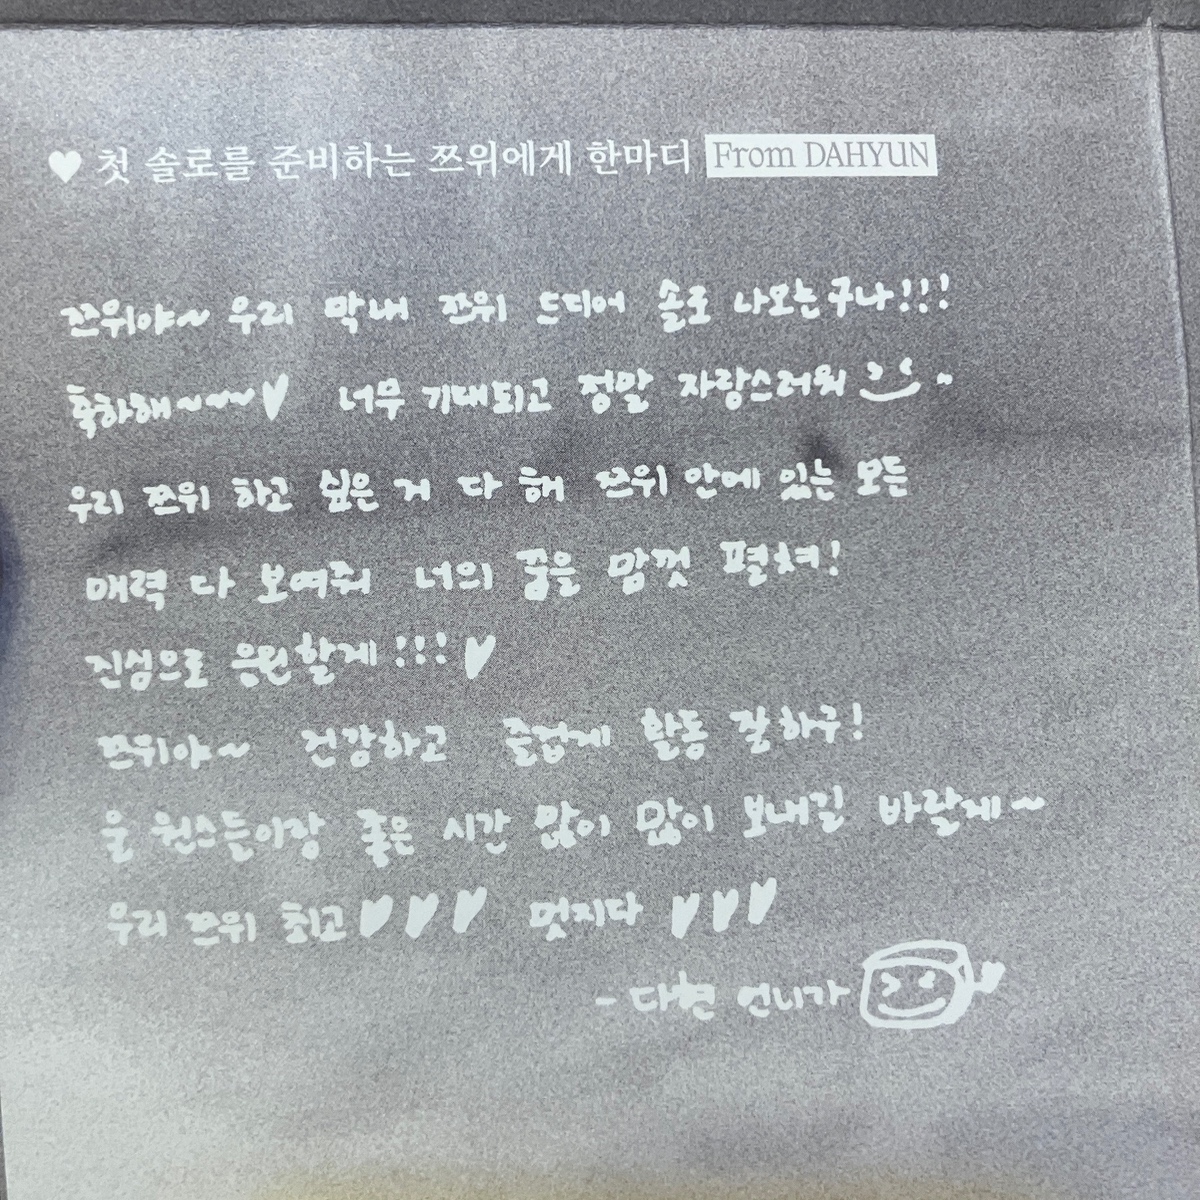 ♥ 첫 솔로를 준비하는 쯔위에게 한마디 From DAHYUN
쯔위야~ 우리 막내 쯔위 드디어 솔로 나오는구나!!!
축하해~~~♥ 너무 기대되고 정말 자랑스러워 :)
우리 쯔위 하고 싶은 거 다 해 쯔위 안에 있는 모든
매력 다 보여줘 너의 꿈을 맘껏 펼쳐!
진심으로 응원할게!!!♥
쯔위야~ 건강하고 즐겁게 활동 잘하구!
울 원스들이랑 좋은 시간 많이 많이 보내길 바랄게~
우리 쯔위 최고♥♥♥ 멋지다 ♥♥♥
- 다현 언니가